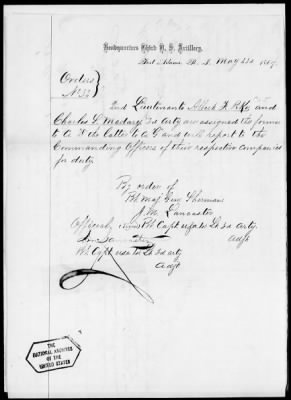 Headquarters Third U.S. Artillery,
Fort Adams R. I. May 22d 1869.
Orders
No. 32
2nd Lieutenants Albert F. and
Charles L. 3d Arty are assigned the former
to A & the latter to G and will report to the
Commanding Officers of their respective companies
for duty.
By order of
Bt Maj Gen Sherman
J. M. Lancaster
Official, Bt Capt usa 1st Lt 3d Arty.
Lancaster Adjt
Bt Capt usa 1st Lt 3d arty
Adjt
THE
NATIONAL ARCHIVES
OF THE
UNITED STATES